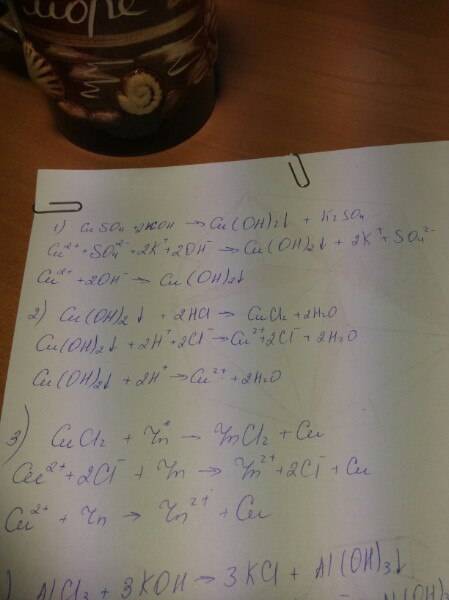 море
1) CuSO₄ + 2KOH → Cu(OH)₂↓ + K₂SO₄
Cu²⁺ + SO₄²⁻ + 2K⁺ + 2OH⁻ → Cu(OH)₂↓ + 2K⁺ + SO₄²⁻
Cu²⁺ + 2OH⁻ → Cu(OH)₂↓
2) Cu(OH)₂↓ + 2HCl → CuCl₂ + 2H₂O
Cu(OH)₂↓ + 2H⁺ + 2Cl⁻ → Cu²⁺ + 2Cl⁻ + 2H₂O
Cu(OH)₂↓ + 2H⁺ → Cu²⁺ + 2H₂O
3) CuCl₂ + Zn → ZnCl₂ + Cu
Cu²⁺ + 2Cl⁻ + Zn → Zn²⁺ + 2Cl⁻ + Cu
Cu²⁺ + Zn → Zn²⁺ + Cu
) AlCl₃ + 3KOH → 3KCl + Al(OH)₃↓